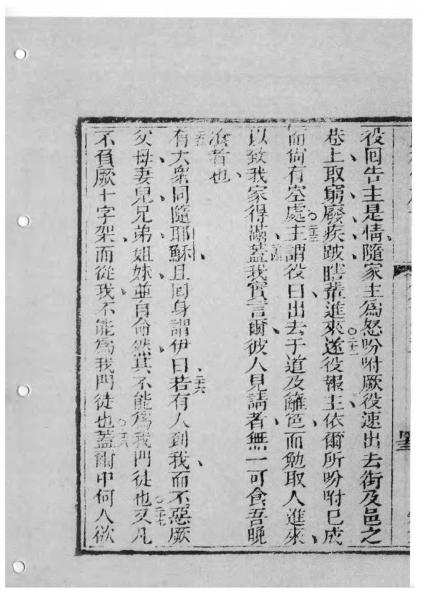 役回告主是情隨家主爲怒吩咐厥役速出去街及邑之
巷上取窮廢疾跛瞎輩進來遂役報主依爾所吩咐已成
而尙有空處主謂役曰出去于道及籬芭而勉取人進來
以致我家得滿蓋我實言爾彼人見請者無一可食吾晚
飡者也
有大衆同隨耶穌且回身謂伊曰若有人到我而不惡厥
父母妻兒兄弟姐妹並自命然其不能爲我門徒也又凡
不負厥十字架而從我不能爲我門徒也蓋爾中何人欲